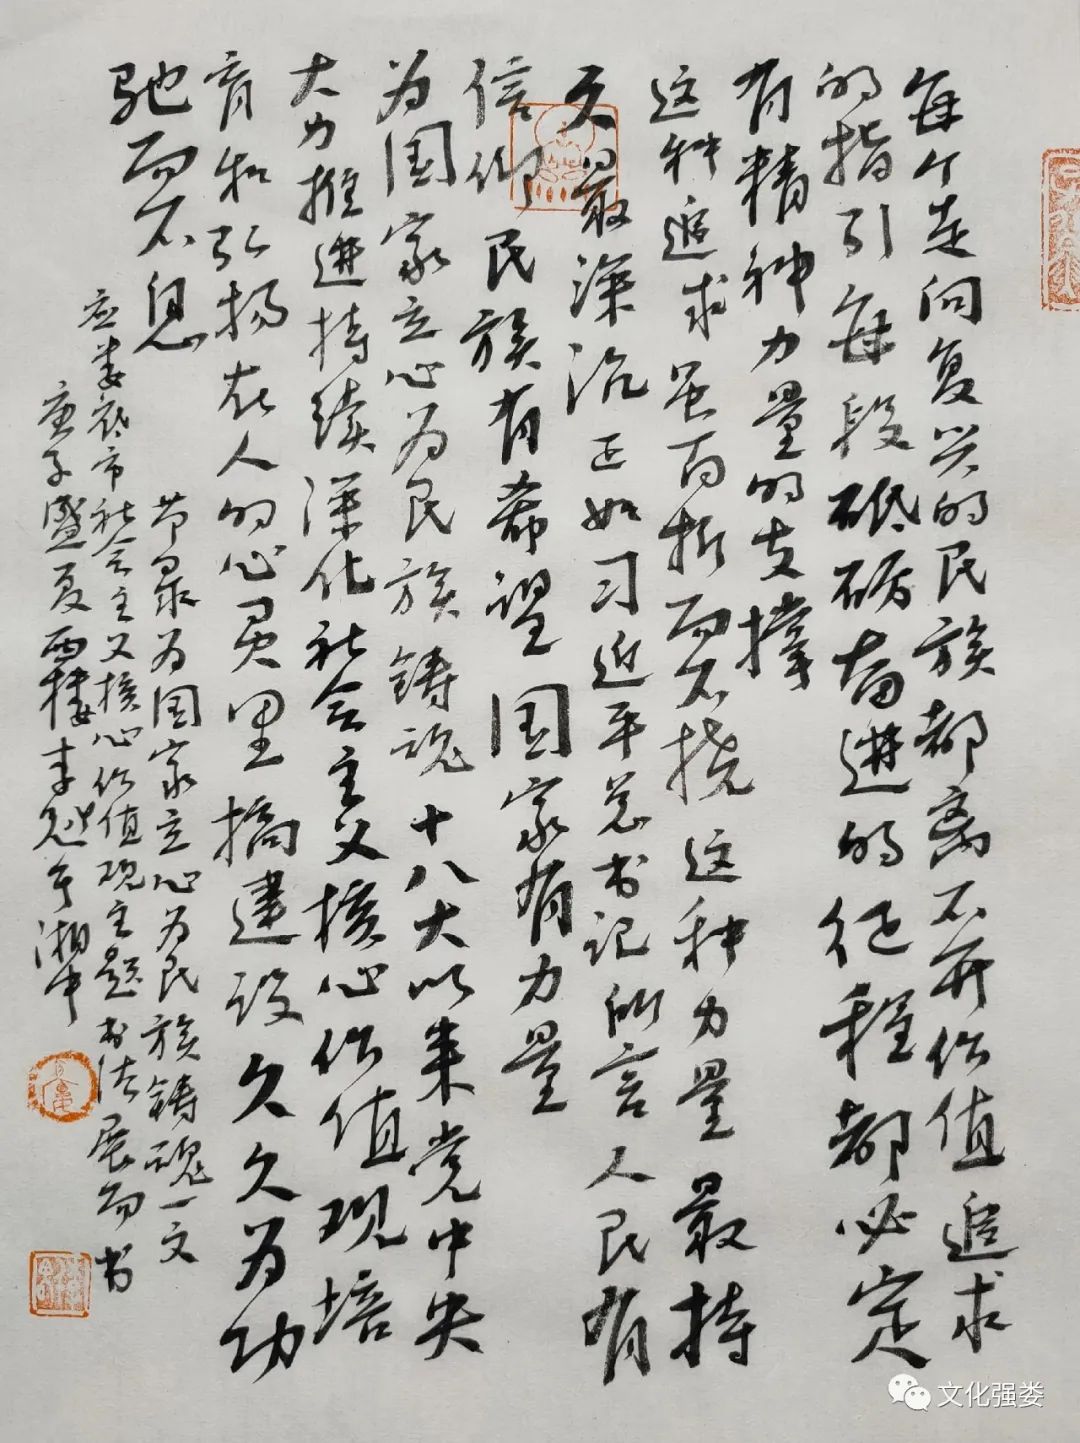 每个走向复兴的民族都离不开价值追求
的指引每段砥砺奋进的征程都必定
有精神力量的支撑
这种追求虽百折而不挠这种力量最持
久最深沉正如习近平总书记所言人民有
信仰民族有希望国家有力量
为国家立心为民族铸魂十八大以来党中央
大力推进持续深化社会主义核心价值观培
育和弘扬在人的心灵里搞建设久久为功
驰而不息
节录为国家立心为民族铸魂一文
应娄底市社会主义核心价值观主题书法展而书
庚子盛夏西楼李
湘中
文化强娄